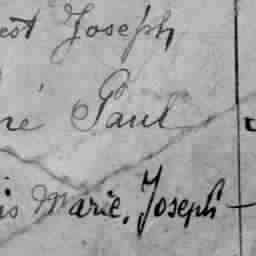 est Joseph
né Paul
is Marie, Joseph –